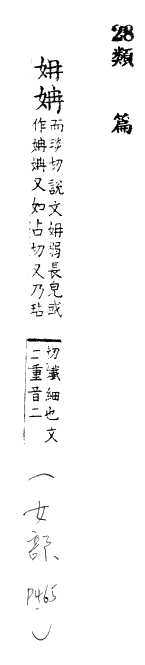 28類
篇
姌䎃
而涉切說文姌弱長皃或
作㛁㛁又如占切又乃玷
切孅細也文
二重音二
(女部 P465)